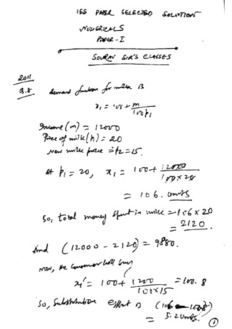 ISS PAPER SELECTED SOLUTION
NUMERICALS
PAPER-I
SOURAV SIR'S CLASSES
2011
Demand function for milk is
x₁ = 100 + m/100p₁
Income (m) = 12000
Price of milk (p₁) = 20
new milk price = 15.
At p₁ = 20, x₁ = 100 + 12000/100×20
= 106. units
So, total money spent in milk = 106 × 20
= 2120.
And (12000 - 2120) = 9880.
now, the consumer
x₁' = 100 + /100×15 = 100.8
So, Substitution effect is (106 - 100.8)
= 5.2 units.
1